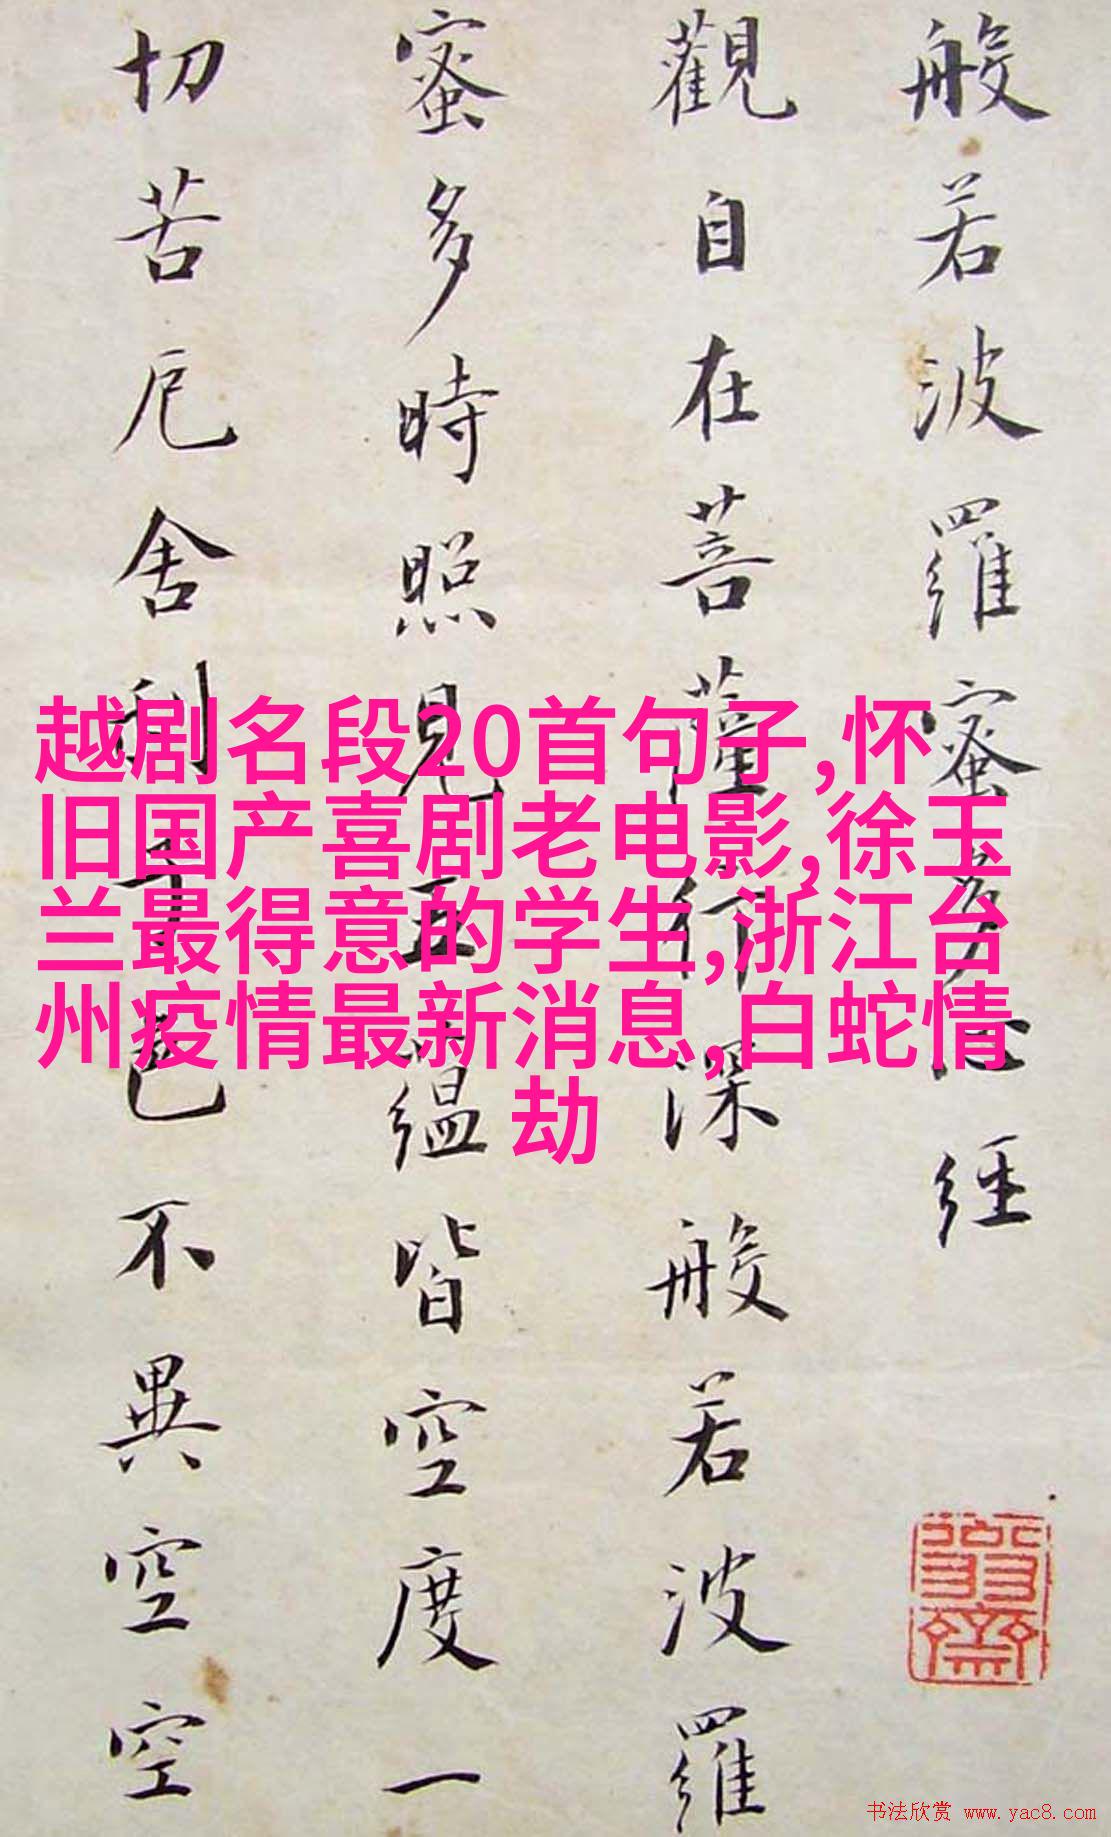 般若波羅蜜多心經
觀自在菩薩行深般若波羅
蜜多時照見五蘊皆空度一
切苦厄舍利子色不異空空
越剧名段20首句子,怀
旧国产喜剧老电影,徐玉
兰最得意的学生,浙江台
州疫情最新消息,白蛇情
劫
书法欣赏 www.yac8.com